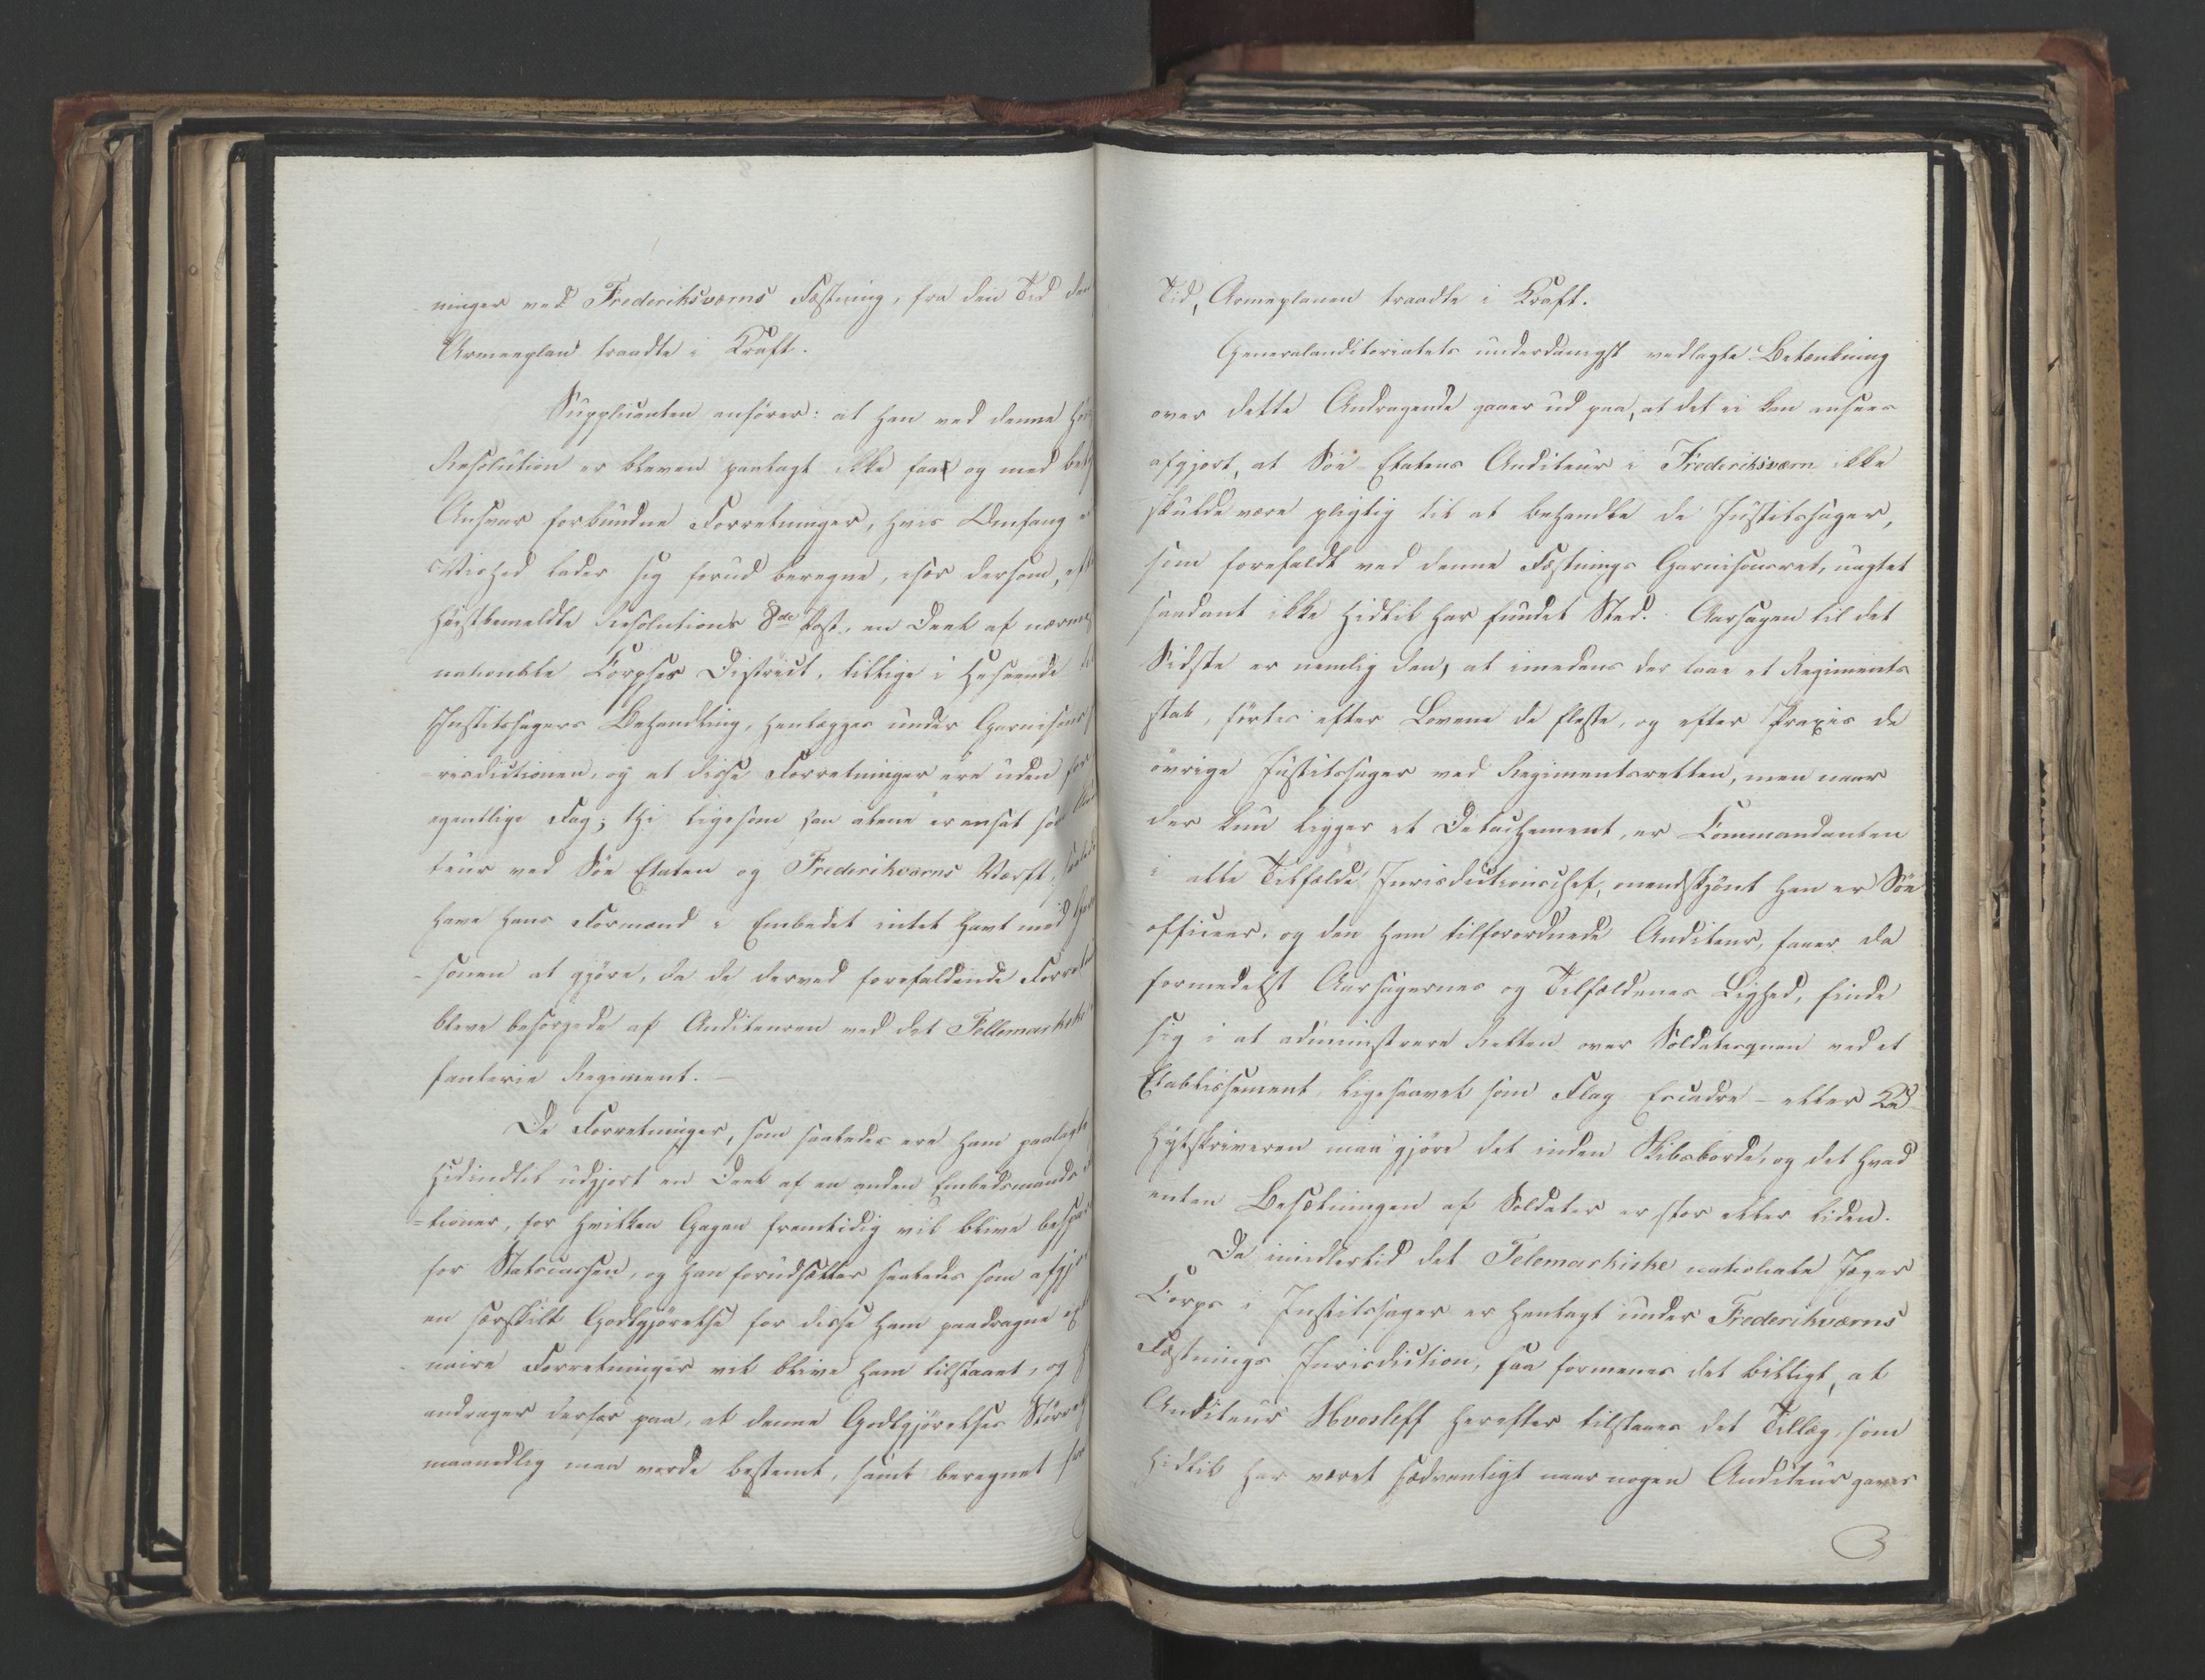 ninger ved Frederiksværns Fæstning, fra den Tid den
Armeeplan traadte i Kraft.
Supplicanten anfører: at han ved denne Høi
Resolution er bleven paalagt ikke faae og med bety
Ansvar forbundne Forretninger, hvis Omfang ei
Vished lader sig forud beregne, især dersom, efter
høistbemeldte Resolutions 8de Post, en Deel af nærmes
nationale Corpses District, tillige i Henseende til
Justitssagers Behandling, henlægges under Garnisons
risdictionen, og at disse Forretninger ere uden for
egentlige Fag; thi ligesom han alene er ansat som Audi
teur ved Søe Etaten og Frederiksværns Værft, saaledes
have hans Formænd i Embedet intet havt med Garni
-sonen at gjøre, da de derved forefaldende Forretnin
bleve besørgede af Auditeuren ved det Tellemarkske In
fanterie Regiment.
De Forretninger, som saaledes ere ham paalagte
hidindtil udgjort en Deel af en anden Embedsmands
=tioner, for hvilken Gagen fremtidig vil blive bespa
for Statscassen, og han forudsætter saaledes som afgjo
en særskilt Godtgjørelse for disse ham paadragne
naire Forretninger vil blive ham tilstaaet, og
andrager derfor paa, at denne Godtgjørelses Større
maanedlig maa vorde bestemt, samt beregnet fra
Tid, Armeplanen traadte i Kraft.
Generalauditoriatets underdanigst vedlagte Betænkning
over dette Andragende gaaer ud paa, at det ei kan ansees
afgjort, at Søe-Etatens Auditeur i Frederiksværn ikke
skulde være pligtig til at behandle de Justitssager,
som forefaldt ved denne Fæstnings Garnisonsret, uagtet
saadant ikke hidtil har fundet Sted. Aarsagen til det
Sidste er nemlig den, at imedens der laae et Regiments
stab, førtes efter Lovene de fleste, og efter Praxis de
øvrige Justitssager ved Regimentsretten, men naar
der kun ligger et Detachement, er Commandanten
i alle Tilfælde Jurisdictionschef, omendskjønt han er Søe
officeer, og den ham tilforordnede Auditeur, faaer da
formedelst Aarsagernes og Tilfældenes Lighed, finde
sig i at administrere Retten over Soldatesquen ved et
Etablissement, ligesaavel som Flag Escadre- eller Ka
hytskriveren maa gjøre det inden Skibsborde, og det hvad
enten Besætningen af Soldater er stor eller liden.
Da imidlertid det Telemarkiske nationale Jæger
Corps i Justitssager er henlagt under Frederiksværns
Fæstnings Jurisdiction, saa formenes det billigt, at
Auditeur Hvosleff herefter tilstaaes det Tillæg, som
hidtil har været sædvanligt naar nogen Auditeur gaves